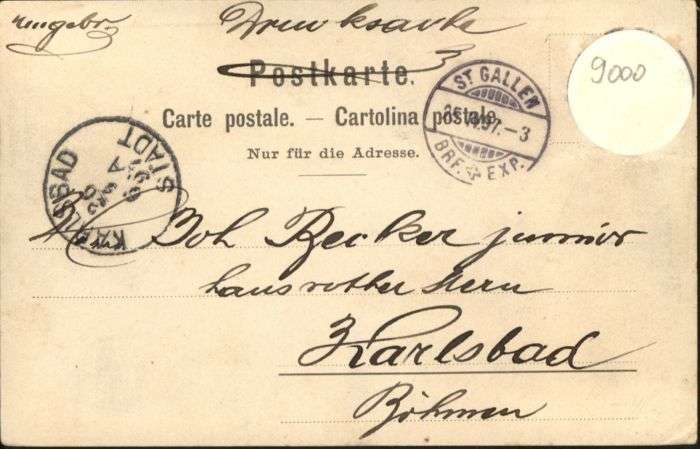 Drucksache
3
Postkarte.
Carte postale. — Cartolina postale.
Nur für die Adresse.
ST GALLEN
97.–3
BRF. EXP.
9000
KARLSBAD
STADT
Joh Becker junior
haus rother stern
Karlsbad
Böhmen